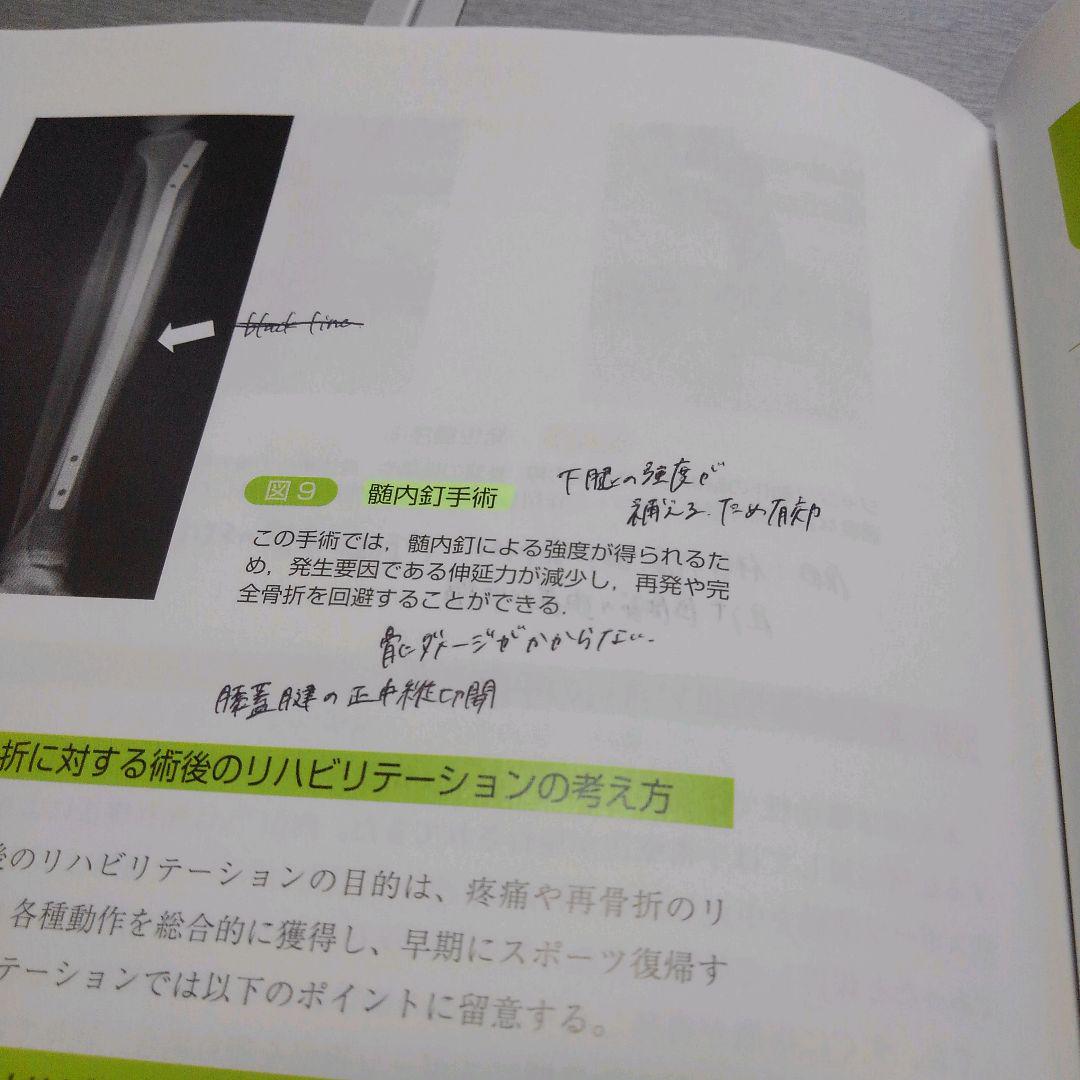 black line
図9 髄内釘手術
下腿の強度が
補える.ため有効
この手術では，髄内釘による強度が得られるた
め，発生要因である伸延力が減少し，再発や完
全骨折を回避することができる．
骨にダメージがかからない.
膝蓋腱の正中縦切開
折に対する術後のリハビリテーションの考え方
後のリハビリテーションの目的は、疼痛や再骨折のリ
各種動作を総合的に獲得し、早期にスポーツ復帰す
テーションでは以下のポイントに留意する。